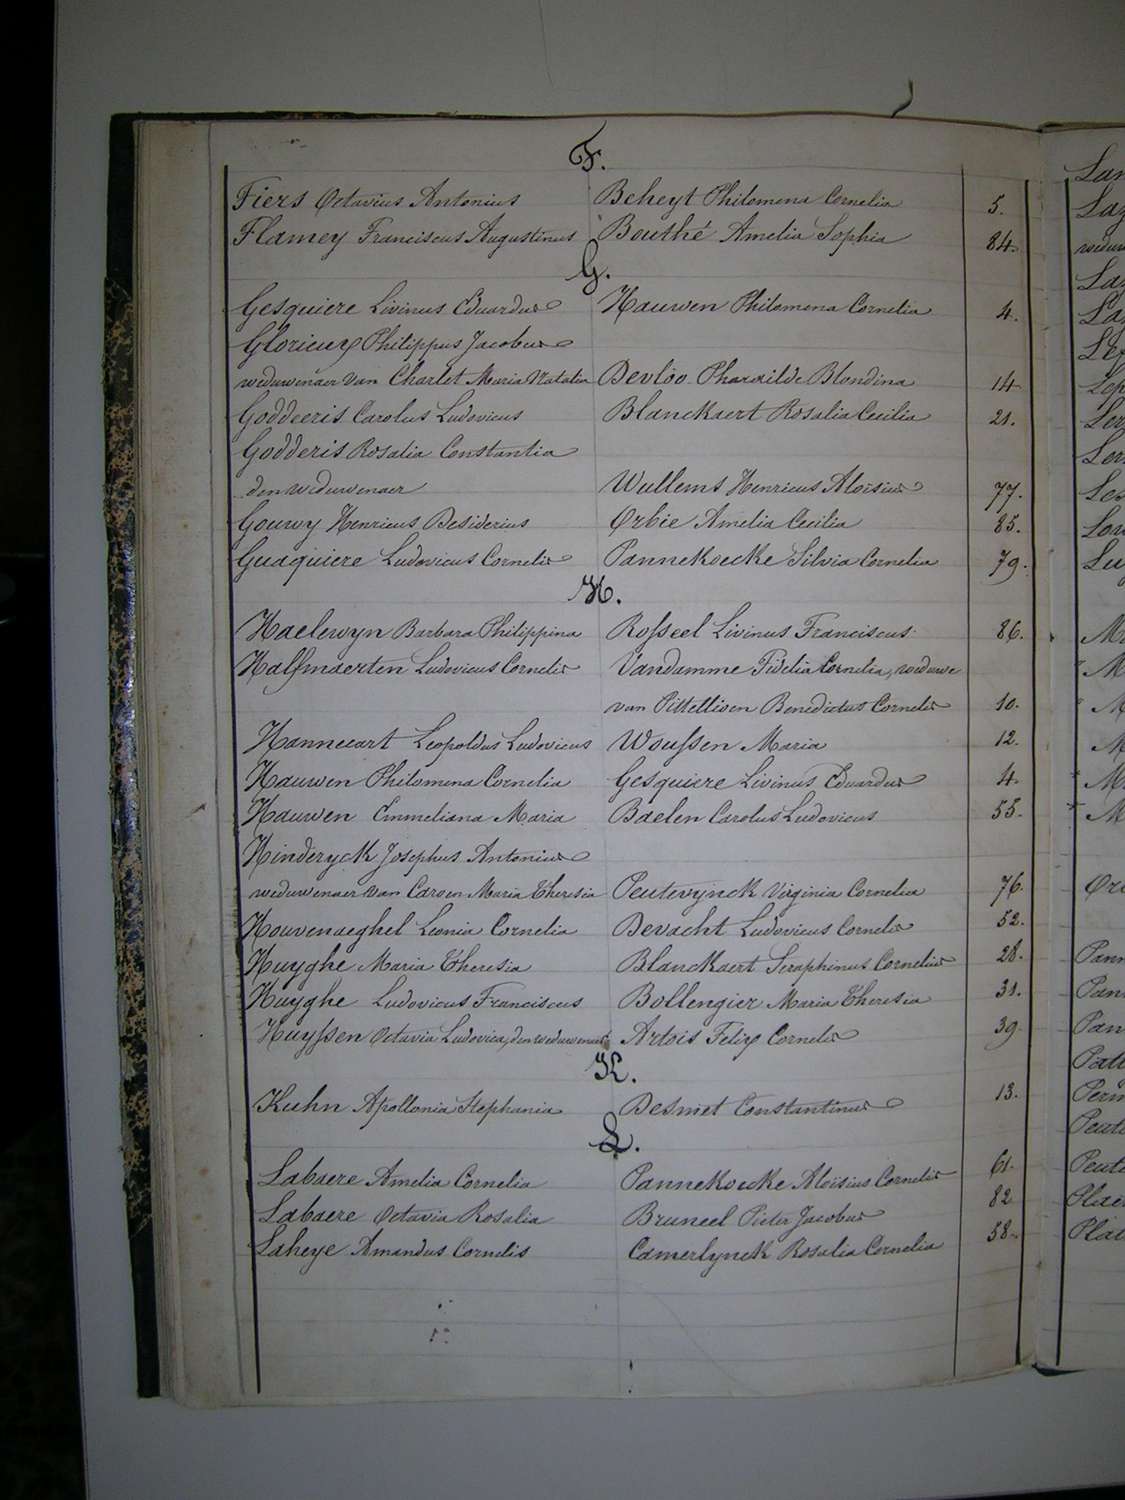 F.
Fiers Octavius Antonius Beheyt Philomena Cornelia 5.
Flamey Franciscus Augustinus Bouthé Amelia Sophia 84.
G.
Gesquiere Livinus Eduardus Hauwen Philomena Cornelia 4.
Glorieux Philippus Jacobus
weduwenaer van Charlet Maria Natalia Devloo Pharaïlde Blondina 14
Goddeeris Carolus Ludovicus Blanckaert Rosalia Cecilia 21.
Godderis Rosalia Constantia
den weduwenaer Wullems Henricus Aloïsius 77.
Gouwy Henricus Desiderius Orbie Amelia Cecilia 85.
Guaquiere Ludovicus Cornelis Pannekoecke Silvia Cornelia 79.
H.
Haelewyn Barbara Philippina Rosseel Livinus Franciscus. 86.
Halfmaerten Ludovicus Cornelis Vandamme Fidelia Cornelia, weduwe
van Pittellioen Benedictus Cornelis 10.
Hannecart Leopoldus Ludovicus Woussen Maria 12.
Hauwen Philomena Cornelia Gesquiere Livinus Eduardus 4.
Hauwen Emmeliana Maria Baelen Carolus Ludovicus 55.
Hinderyck Josephus Antonius
weduwenaer van Caroen Maria Theresia Peuteuynck Virginia Cornelia 76
Houvenaeghel Leonia Cornelia Devacht Ludovicus Cornelis 52.
Huyghe Maria Theresia Blanckaert Seraphinus Cornelius 28.
Huyghe Ludovicus Franciscus Bollengier Maria Theresia 31.
Huyssen Octavia Ludovica, den weduwenaer Artois Felix Cornelis 39
K.
Kuhn Apollonia Stephania Desmet Constantinus 13.
L.
Labaere Amelia Cornelia Pannekoucke Aloïsius Cornelis 61.
Labaere Octavia Rosalia Bruneel Pieter Jacobus 82
Laheye Amandus Cornelis Camerlynck Rosalia Cornelia 58.